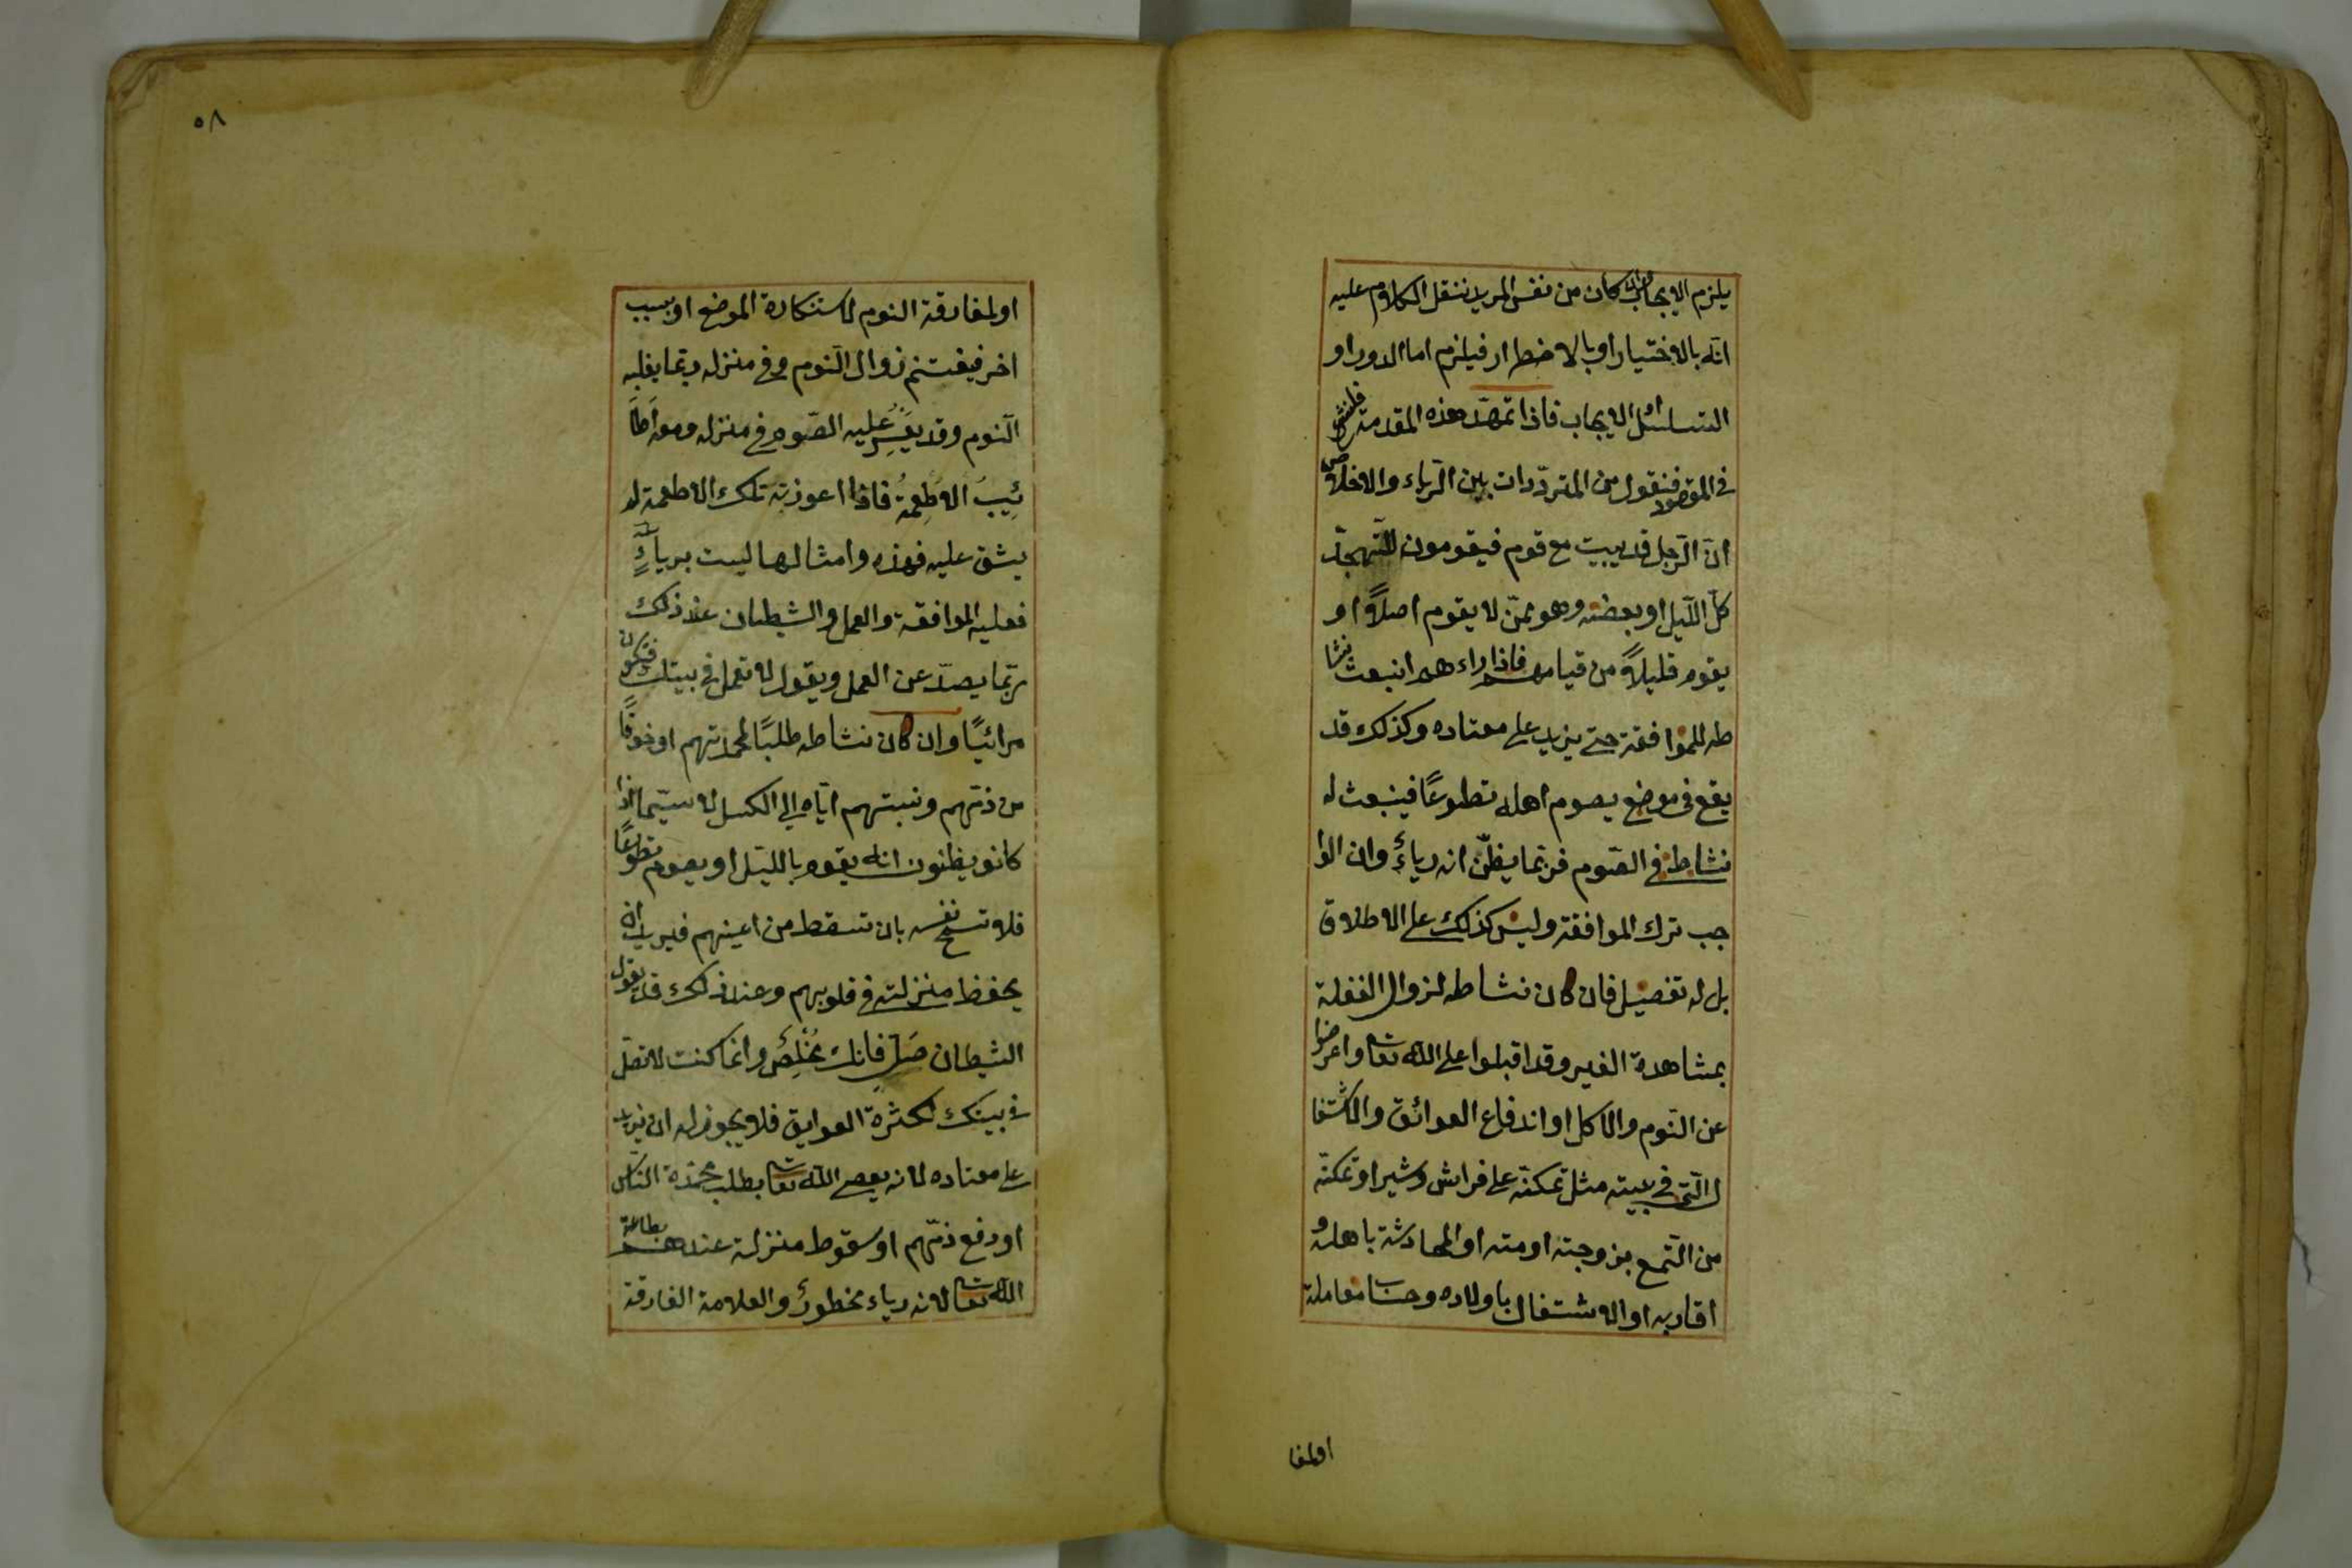 يلزم الايجاب وان كان من نفس المريد ننقل الكلام عليه
انه بالاختيار او بالاضطرار فيلزم اما الدور او
التسلسل او الايجاب فاذا تمهد هذه المقدمة فلنشرع
في المقصود فنقول من المترددات بين الرياء والاخلاص
ان الرجل قد يبيت مع قوم فيقومون للتهجد
كل الليل او بعضه وهو ممن لا يقوم اصلاً او
يقوم قليلاً من قيامهم فاذا راءهم انبعث نشا
طه للموافقة حتى يزيد على معتاده وكذلك قد
يقع في موضع يصوم اهله تطوعًا فينبعث له
نشاط في الصوم فربما يظن انه رياءٌ وان الوا
جب ترك الموافقة وليس كذلك على الاطلاق
بل له تفصيل فان كان نشاطه لزوال الغفلة
بمشاهدة الغير وقد اقبلوا على الله تعالى واعرضوا
عن النوم والاكل او اندفاع العوائق والاشتغا
ل التي في بيته مثل تمكنه على فراش وشير او تمكنه
من التمتع بزوجته او مته او المحادثة باهله و
اقاربه او الاشتغال باولاده وحساب معاملة
اولمفا
٥٨
او لمفارقة النوم لاستنكاره الموضع او بسبب
اخر فيغتنم زوال النوم وفي منزله ربما يغلبه
النوم وقد يعسر عليه الصوم في منزله ومعه اطا
ئيب الاطعمة فاذا اعوزته تلك الاطعمة لم
يشق عليه فهذه وامثالها ليست برياءٍ
فعليه الموافقة والعمل والشيطان عند ذلك
ربما يصد عن العمل ويقول لا تعمل في بيتك فتكون
مرائيًا وان كان نشاطه طلبًا لمحمدتهم او خوفًا
من ذمهم ونسبتهم اياه الى الكسل لا سيما اذا
كانو يظنون انه يقوم بالليل او يصوم تطوعًا
فلا تسمح نفسه بان تسقط من اعينهم فيريد ان
يحفظ منزلته في قلوبهم وعند ذلك قد يقول
الشيطان صل فانك مخلص وانما كنت لا تصل
في بيتك لكثرة العوايق فلا يجوز له ان يزيد
على معتاده لانه يعصى الله تعالى بطلب محمدة الناس
او دفع ذمهم او سقوط منزلته عندهم بطاعة
الله تعالى لانه رياء محظورٌ والعلامة الفارقة